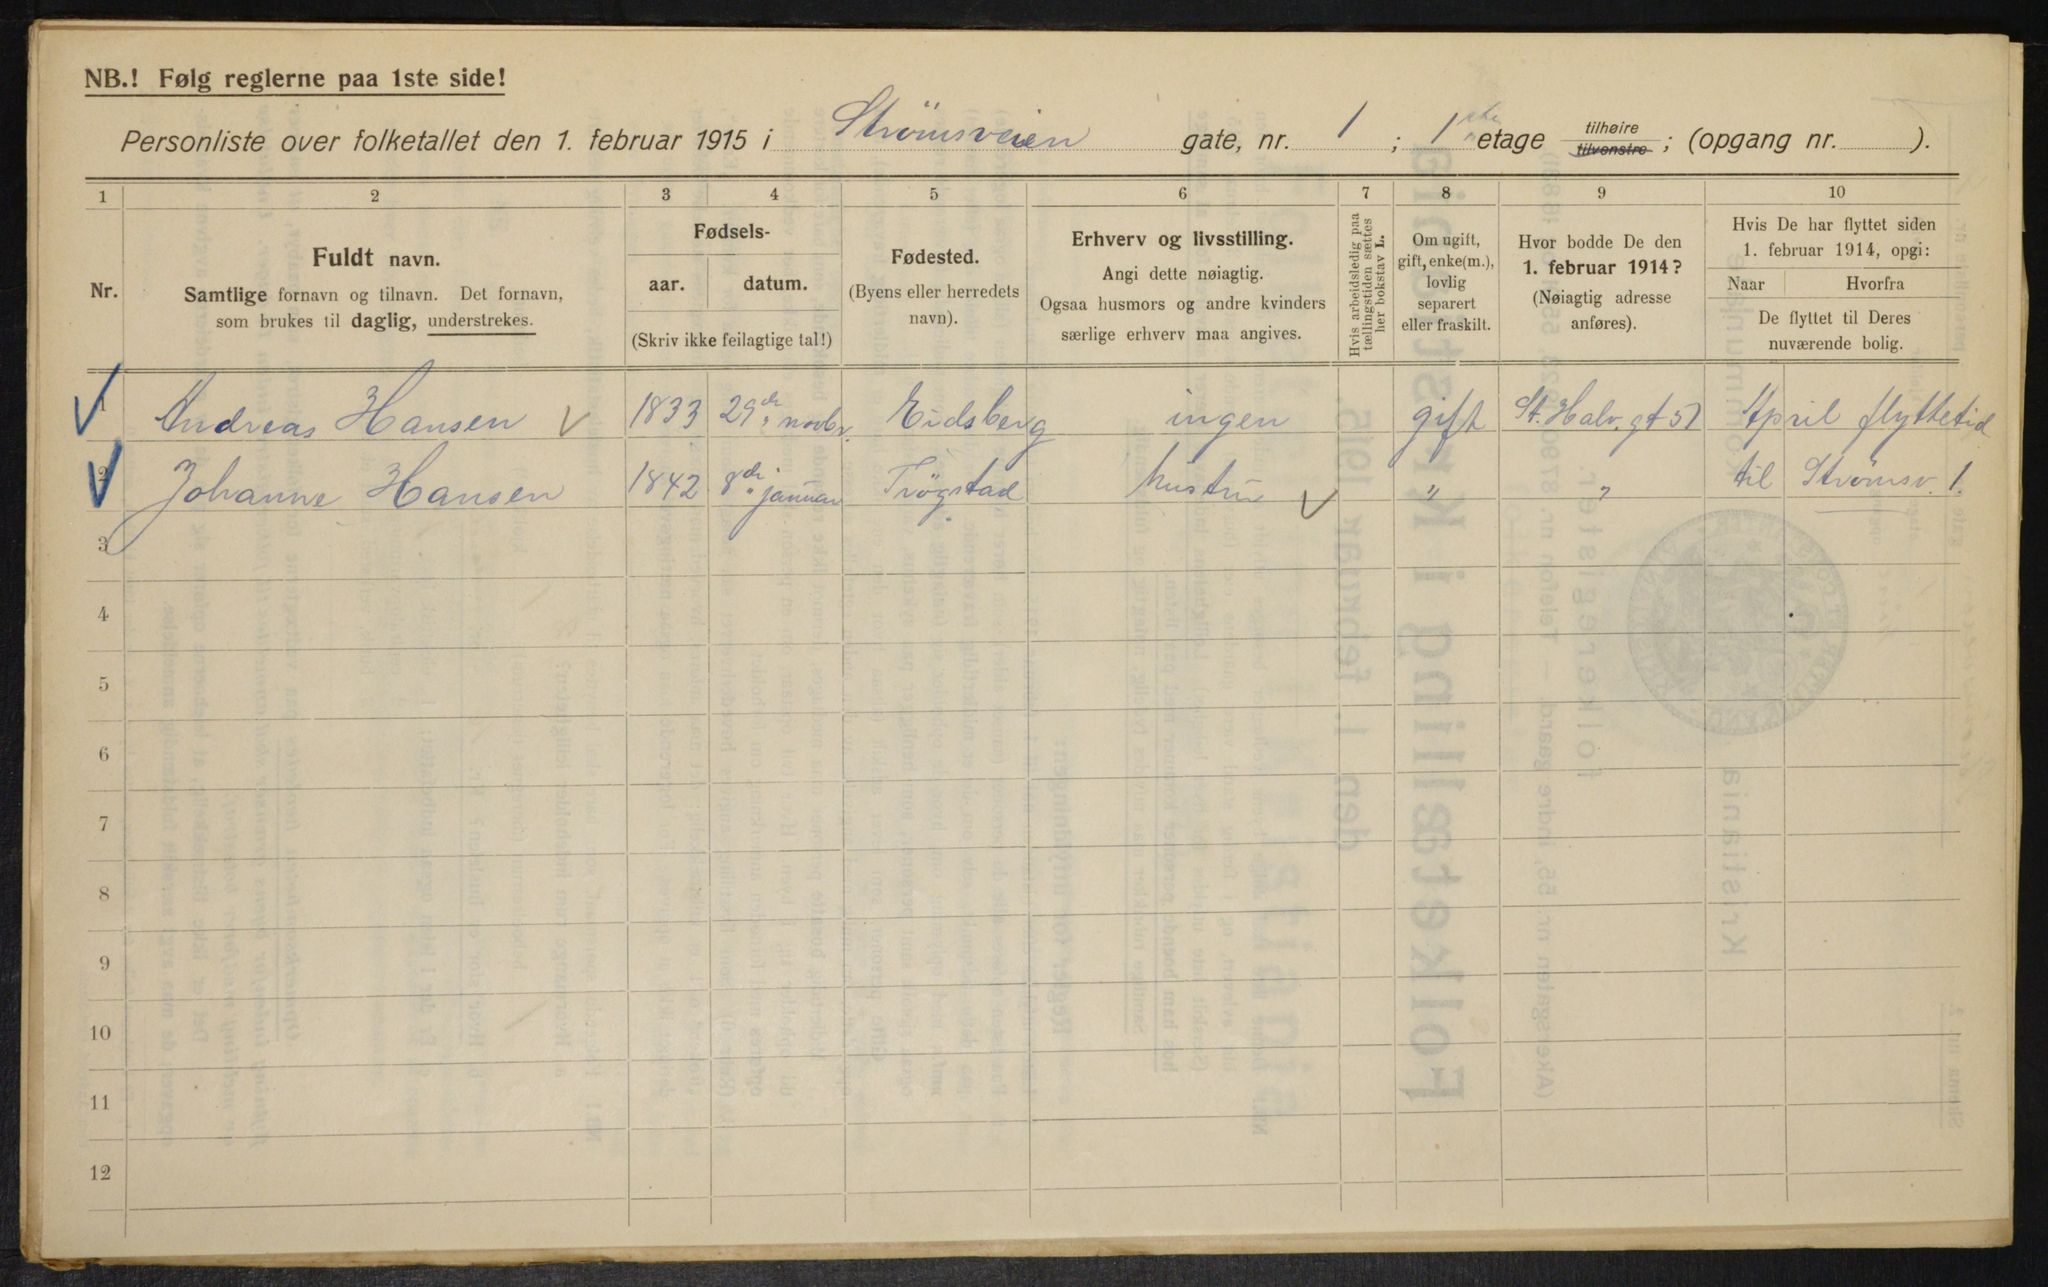 NB.! Følg reglerne paa 1ste side!
Personliste over folketallet den 1. februar 1915 i Strömsveien gate, nr. 1 ; 1ste etage tilhøire tilvenstre ; (opgang nr. ).
1 2 3 4 5 6 7 8 9 10
Nr.
Fuldt navn.
Samtlige fornavn og tilnavn. Det fornavn,
som brukes til daglig, understrekes.
Fødsels-
aar. datum.
(Skriv ikke feilagtige tal!)
Fødested.
(Byens eller herredets
navn).
Erhverv og livsstilling.
Angi dette nøiagtig.
Ogsaa husmors og andre kvinders
særlige erhverv maa angives.
Hvis arbeidsledig paa
tællingstiden sættes
her bokstav L.
Om ugift,
gift, enke(m.),
lovlig
separert
eller fraskilt.
Hvor bodde De den
1. februar 1914?
(Nøiagtig adresse
anføres).
Hvis De har flyttet siden
1. februar 1914, opgi:
Naar Hvorfra
De flyttet til Deres
nuværende bolig.
1 Andreas Hansen 1833 29de novbr. Eidsberg ingen gift St. Halv. gt 57 April flyttetid
2 Johanne Hansen 1842 8de januar Trögstad hustru " " til Strömsv. 1.
3
4
5
6
7
8
9
10
11
12